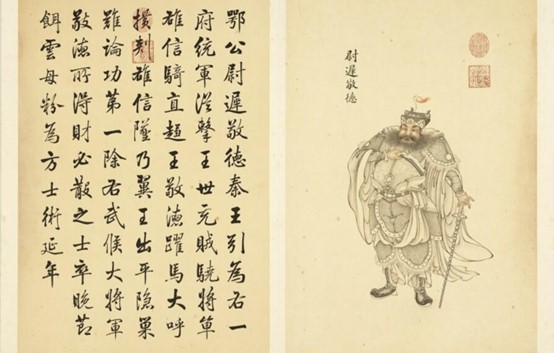 尉遲敬德
鄂公尉遲敬德秦王引為右一
府統軍從擊王世充賊驍將單
雄信騎直趨王敬德躍馬大呼
橫刺雄信墜乃翼王出平隱巢
雖論功第一除右武候大將軍
敬德所得財必散之士卒晚節
餌雲母粉為方士術延年